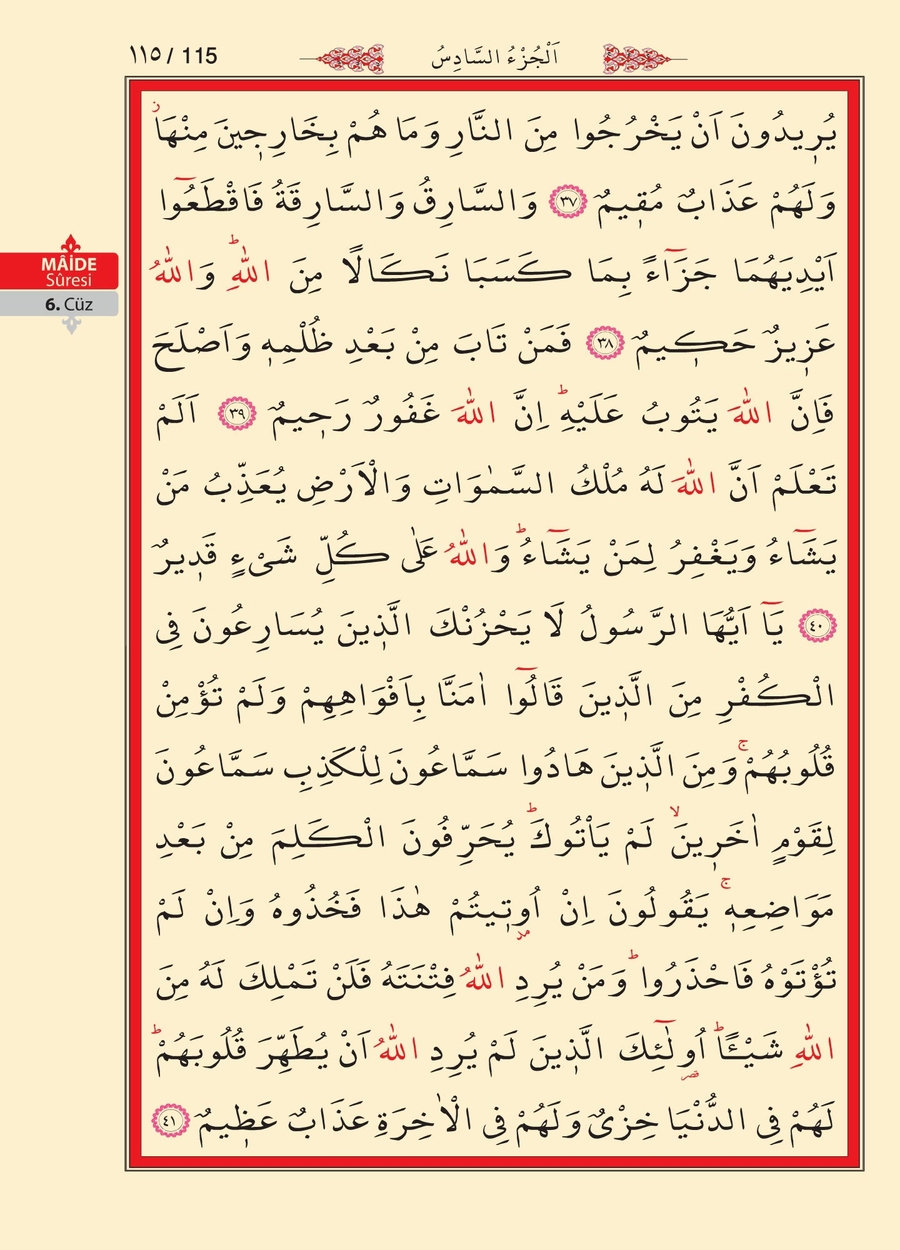 ١١٥ / 115
اَلْجُزْءُ السَّادِسُ
MÂİDE
Sûresi
6. Cüz
يُرٖيدُونَ اَنْ يَخْرُجُوا مِنَ النَّارِ وَمَا هُمْ بِخَارِجٖينَ مِنْهَاؗ
وَلَهُمْ عَذَابٌ مُقٖيمٌ ﴿٣٧﴾ وَالسَّارِقُ وَالسَّارِقَةُ فَاقْطَعُٓوا
اَيْدِيَهُمَا جَزَٓاءً بِمَا كَسَبَا نَكَالًا مِنَ اللّٰهِؕ وَاللّٰهُ
عَزٖيزٌ حَكٖيمٌ ﴿٣٨﴾ فَمَنْ تَابَ مِنْ بَعْدِ ظُلْمِهٖ وَاَصْلَحَ
فَاِنَّ اللّٰهَ يَتُوبُ عَلَيْهِؕ اِنَّ اللّٰهَ غَفُورٌ رَحٖيمٌ ﴿٣٩﴾ اَلَمْ
تَعْلَمْ اَنَّ اللّٰهَ لَهُ مُلْكُ السَّمٰوَاتِ وَالْاَرْضِ يُعَذِّبُ مَنْ
يَشَٓاءُ وَيَغْفِرُ لِمَنْ يَشَٓاءُؕ وَاللّٰهُ عَلٰى كُلِّ شَیْءٍ قَدٖيرٌ
﴿٤٠﴾ يَٓا اَيُّهَا الرَّسُولُ لَا يَحْزُنْكَ الَّذٖينَ يُسَارِعُونَ فِى
الْكُفْرِ مِنَ الَّذٖينَ قَالُٓوا اٰمَنَّا بِاَفْوَاهِهِمْ وَلَمْ تُؤْمِنْ
قُلُوبُهُمْۚ وَمِنَ الَّذٖينَ هَادُوا سَمَّاعُونَ لِلْكَذِبِ سَمَّاعُونَ
لِقَوْمٍ اٰخَرٖينَۙ لَمْ يَاْتُوكَؕ يُحَرِّفُونَ الْكَلِمَ مِنْ بَعْدِ
مَوَاضِعِهٖۚ يَقُولُونَ اِنْ اُوتٖيتُمْ هٰذَا فَخُذُوهُ وَاِنْ لَمْ
تُؤْتَوْهُ فَاحْذَرُواؕ وَمَنْ يُرِدِ اللّٰهُ فِتْنَتَهُ فَلَنْ تَمْلِكَ لَهُ مِنَ
اللّٰهِ شَيْـًٔاؕ اُولٰٓئِكَ الَّذٖينَ لَمْ يُرِدِ اللّٰهُ اَنْ يُطَهِّرَ قُلُوبَهُمْؕ
لَهُمْ فِى الدُّنْيَا خِزْىٌ وَلَهُمْ فِى الْاٰخِرَةِ عَذَابٌ عَظٖيمٌ ﴿٤١﴾